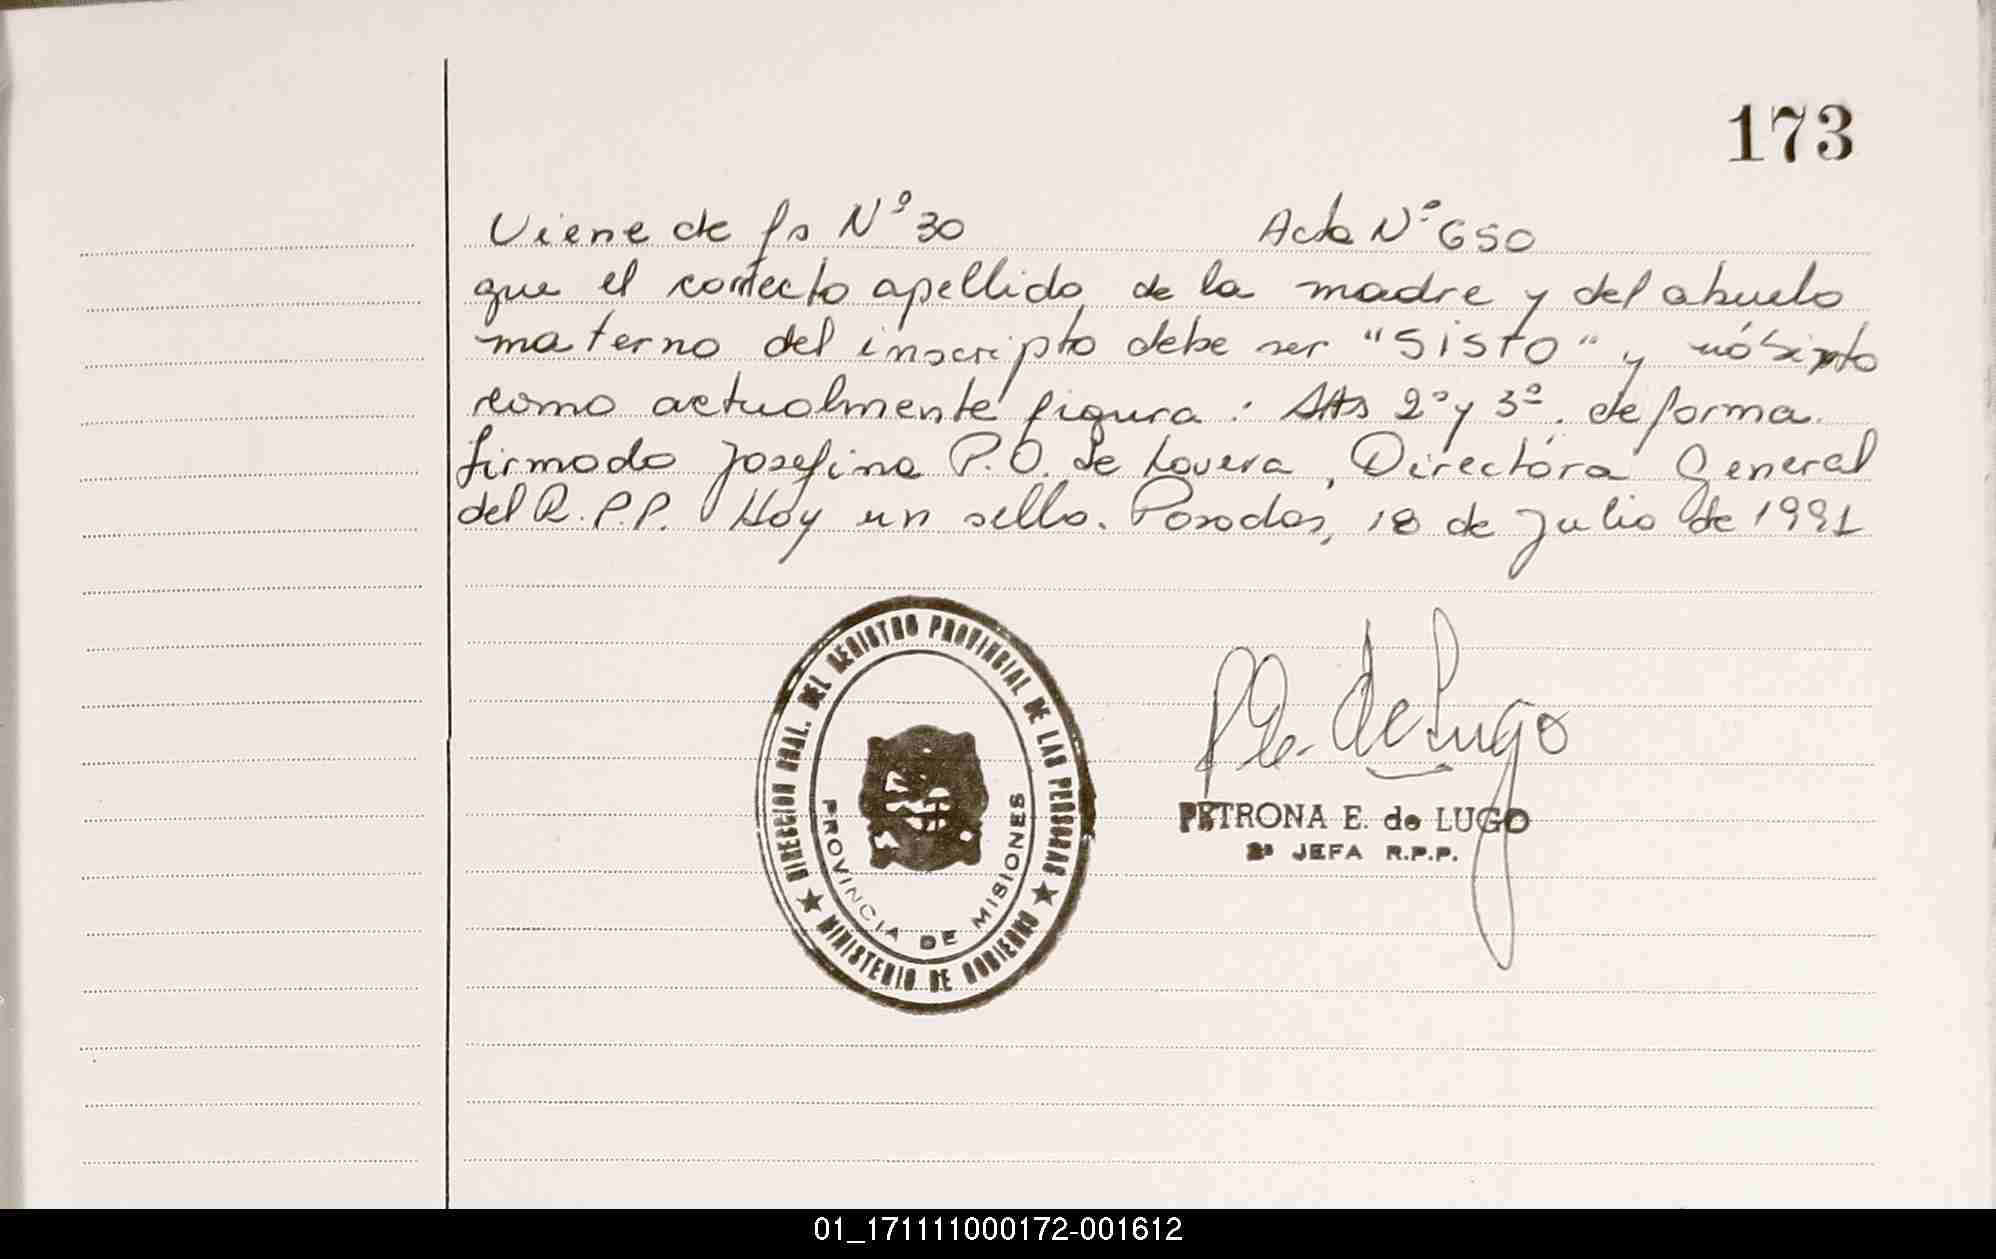 173
Viene de fs Nº 30 Acta Nº 650
que el correcto apellido de la madre y del abuelo
materno del inscripto debe ser "Sisto" y
como actualmente figura: Atts 2º y 3º. de forma.
firmado Josefina P.O. de Lovera, Directora General
del R.P.P. Hay un sello. Posadas, 18 de Julio de 1991
DIRECCION GRAL. DEL REGISTRO PROVINCIAL DE LAS PERSONAS
PROVINCIA DE MISIONES
MINISTERIO DE GOBIERNO
PE. de Lugo
PETRONA E. de LUGO
2ª JEFA R.P.P.
01_171111000172-001612